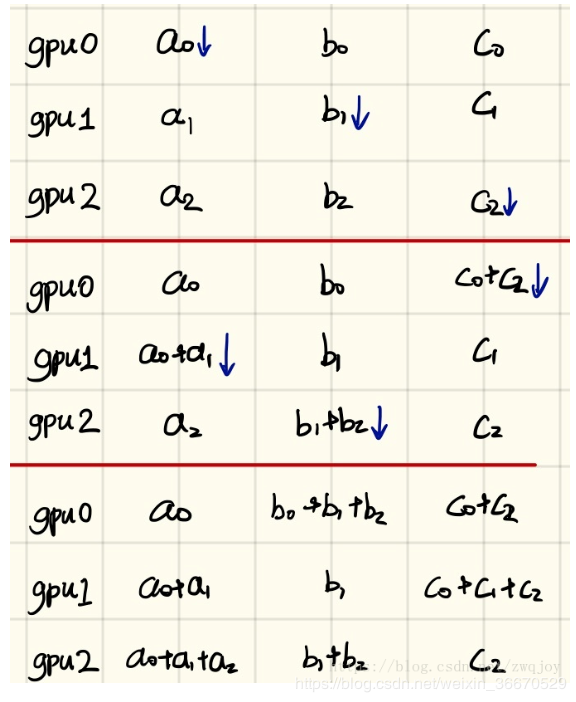 gpu0 a₀↓ b₀ c₀
gpu1 a₁ b₁↓ c₁
gpu2 a₂ b₂ c₂↓
gpu0 a₀ b₀ c₀+c₂↓
gpu1 a₀+a₁↓ b₁ c₁
gpu2 a₂ b₁+b₂↓ c₂
gpu0 a₀ b₀+b₁+b₂ c₀+c₂
gpu1 a₀+a₁ b₁ c₀+c₁+c₂
gpu2 a₀+a₁+a₂ b₁+b₂ c₂
https://blog.csdn.net/zwqjoy
https://blog.csdn.net/weixin_36670529